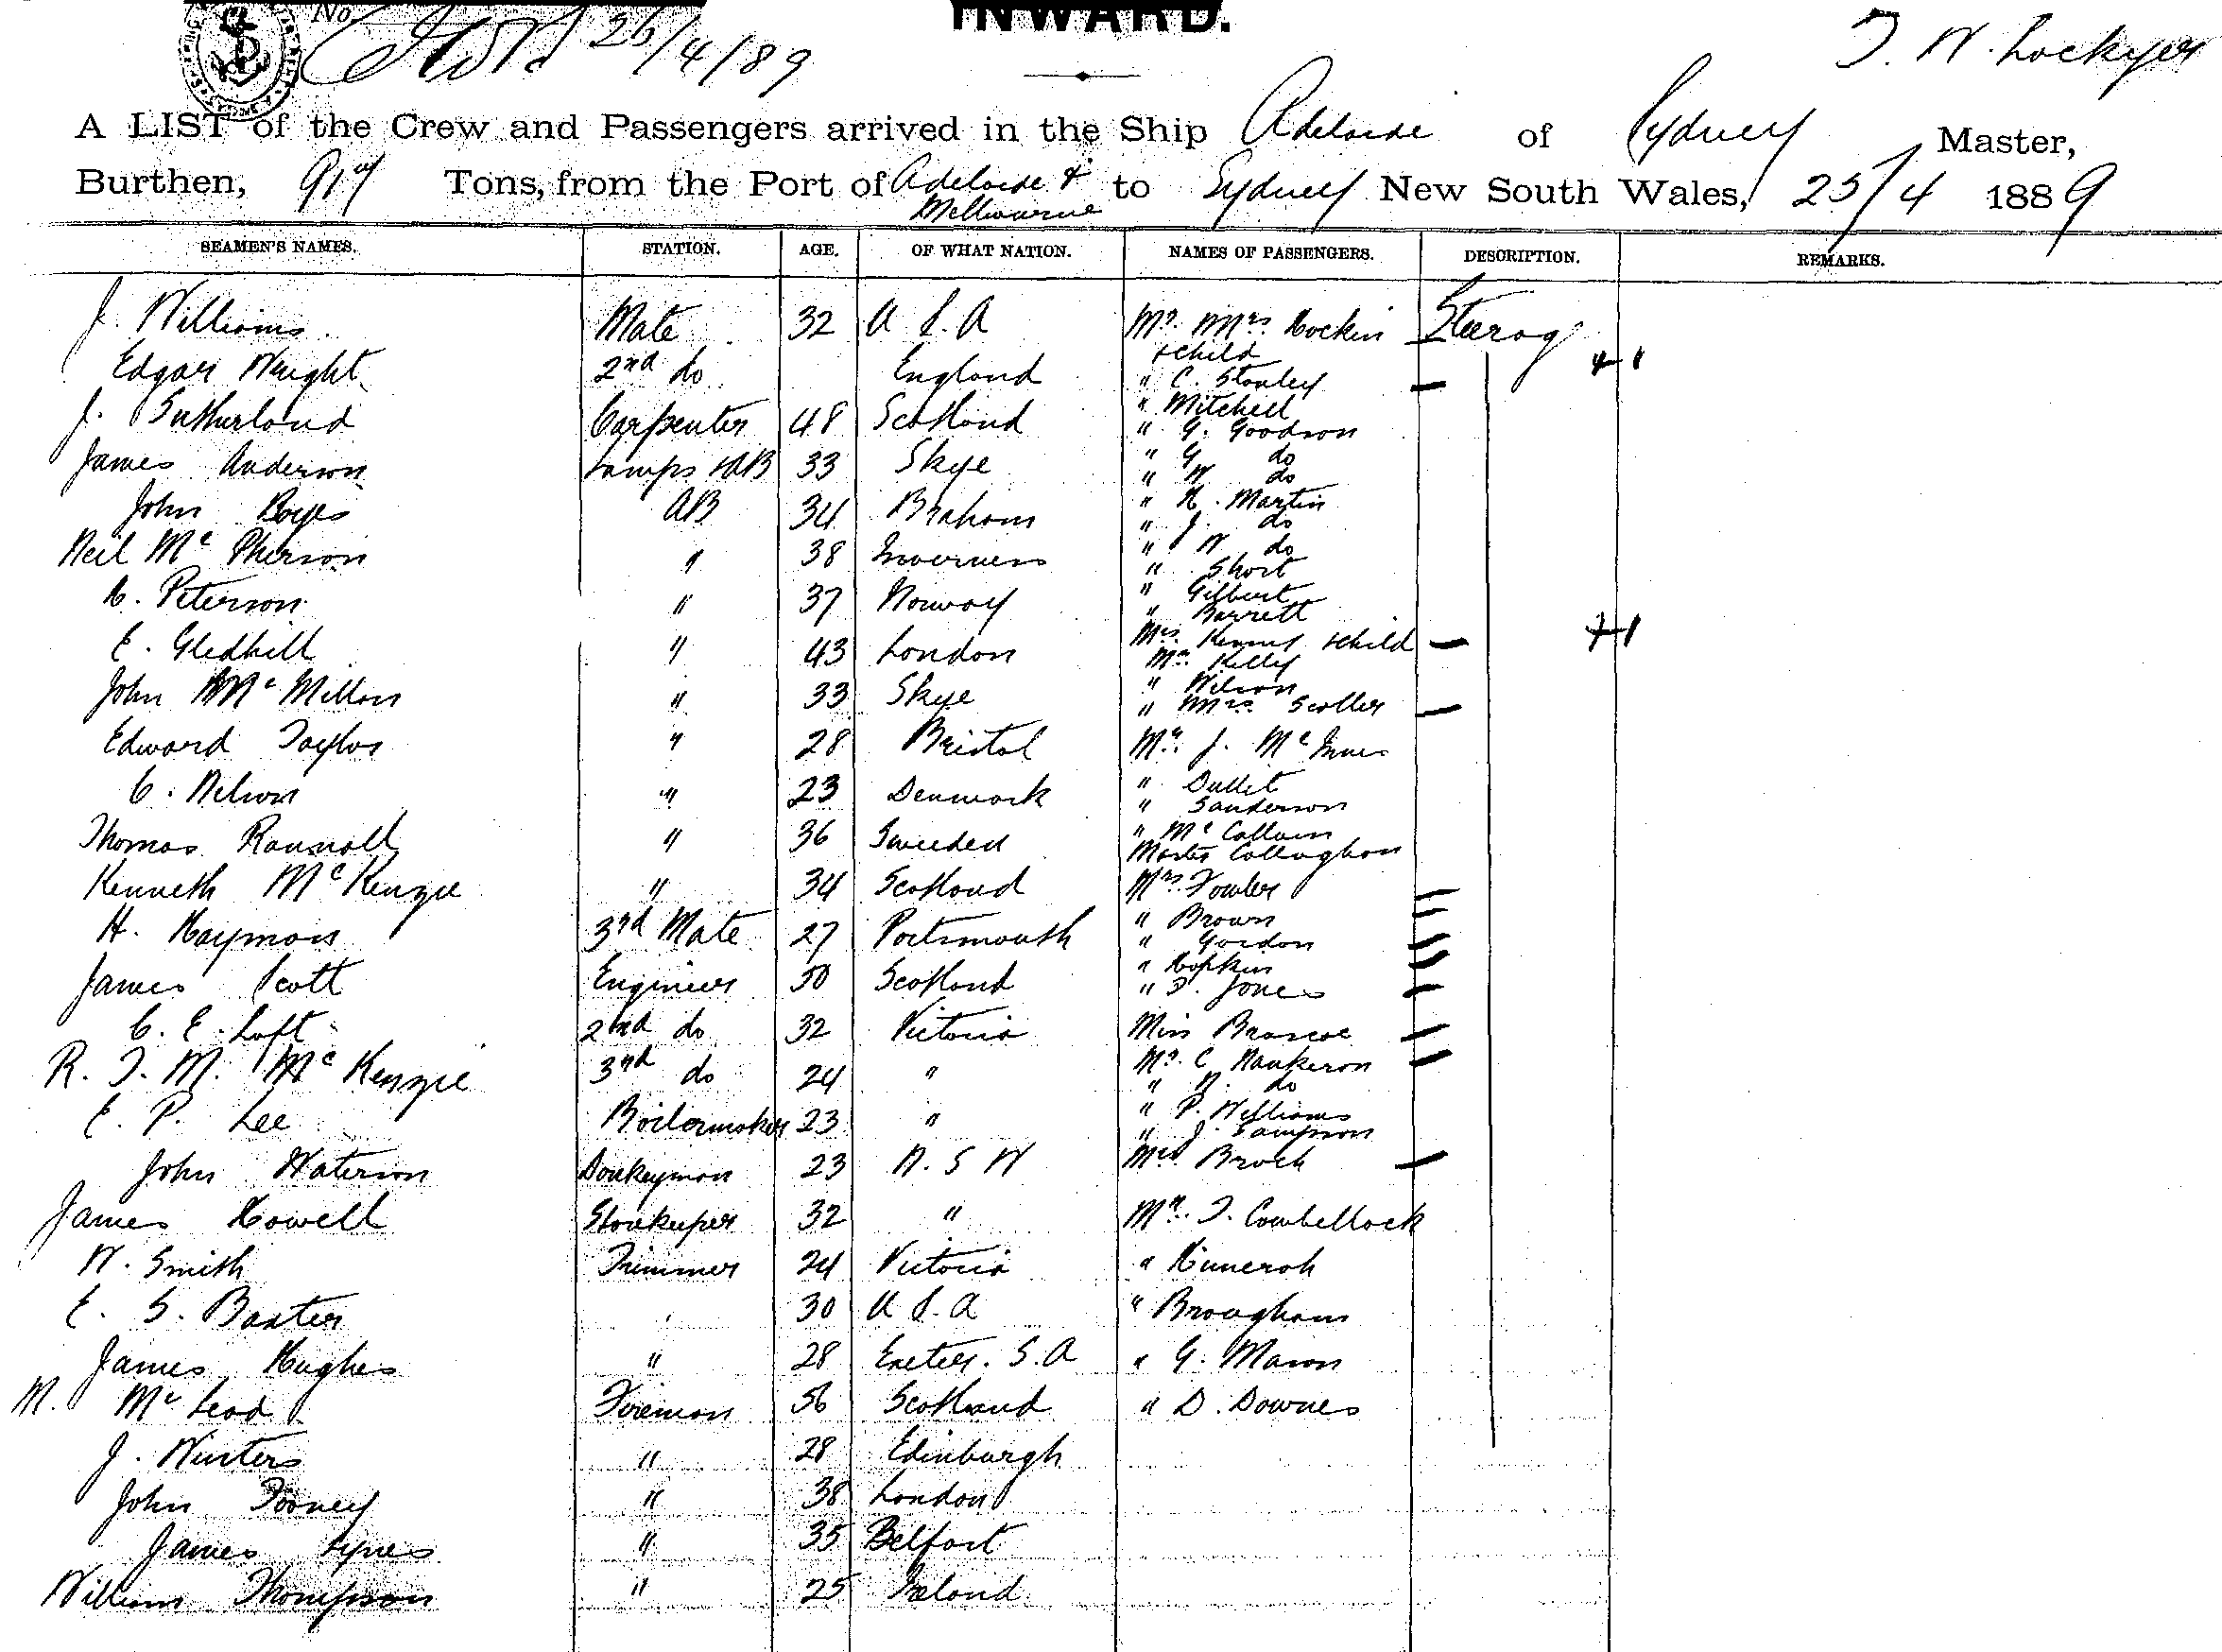 No 26/4/89
INWARD.
T. W. Lockyer
A LIST of the Crew and Passengers arrived in the Ship Adelaide of Sydney Master,
Burthen, 919 Tons, from the Port of Adelaide & Melbourne to Sydney New South Wales, 25/4 1889
SEAMEN'S NAMES. STATION. AGE. OF WHAT NATION. NAMES OF PASSENGERS. DESCRIPTION. REMARKS.
J. Williams Mate 32 U S. A Mr. Mrs. Hockin Steerag
& child
Edgar Wright 2nd do England " C. Stanley
J. Sutherland Carpenter 48 Scotland " Mitchell
" G. Goodson
James Anderson Lamps & AB 33 Skye " G do
" W do
John Boyes AB 34 " H. Martin
" J. do
Neil Mc Pherson " 38 Inverness " W do
" Short
C. Peterson " 37 Norway " Gilbert
" Barrett
E. Gledhill " 43 London Mrs. & child
Mr. Kelly
John Mc Millan " 33 Skye " Wilson
" Mrs. Scoller
Edward Taylor " 28 Bristol Mr. J. McInnes
C. Nelson " 23 Denmark " Dullet
" Sanderson
Thomas " 36 Sweden " McCallum
Master Callaghan
Kenneth McKenzie " 34 Scotland Mrs. Fowler
H. Hayman 3rd Mate 27 Portsmouth " Brown
" Gordon
James Scott Engineer 50 Scotland " Hopkin
" T. Jones
C. E. Loft 2nd do 32 Victoria Miss Brascoe
R. T. M. McKenzie 3rd do 24 " Mr. C Hankeron
" N. do
E. P. Lee Boilermaker 23 " " P. Williams
" J. Sampson
John Waterson Donkeyman 23 N. S W Mrs. Broch
James Howell Storekeeper 32 " Mr. T. Combellock
W. Smith Trimmer 24 Victoria "
E. S. Baxter " 30 U S. A " Brougham
James Hughes " 28 Exeter. S. A " G. Mason
M. McLeod Fireman 56 Scotland " D. Downes
J. Winters " 28 Edinburgh
John Tooney " 38 London
James Lynes " 35 Belfast
William Thompson " 25 Ireland